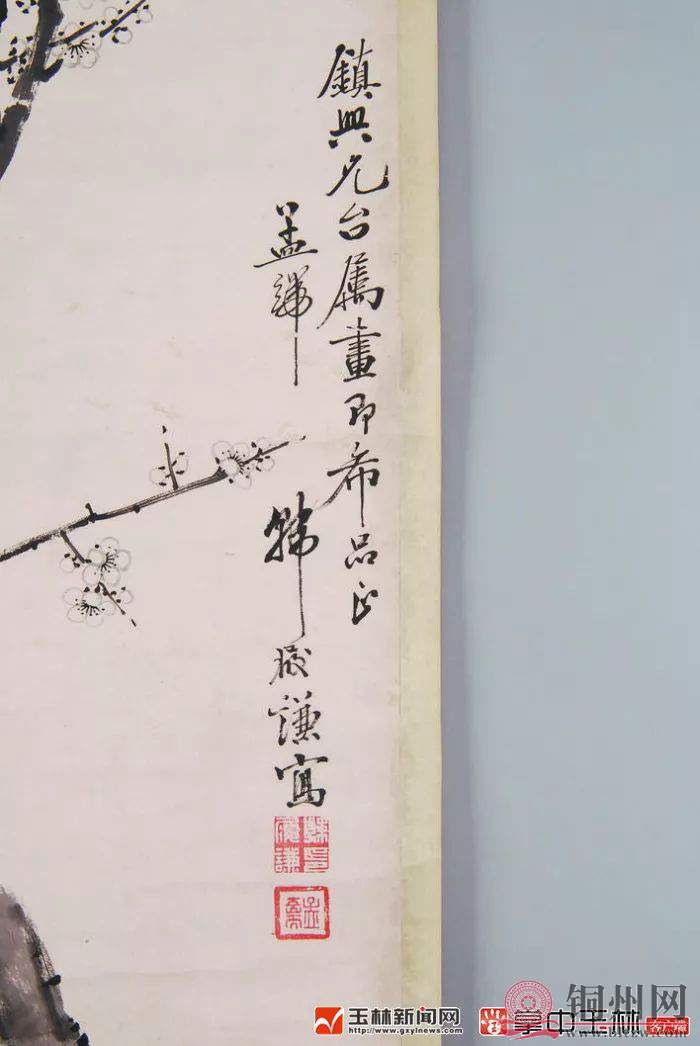 鎮興兄台屬畫即希品正
孟緯
韓 謙寫
铜州网
玉林新闻网
www.gxylnews.com
掌中玉林
客户端